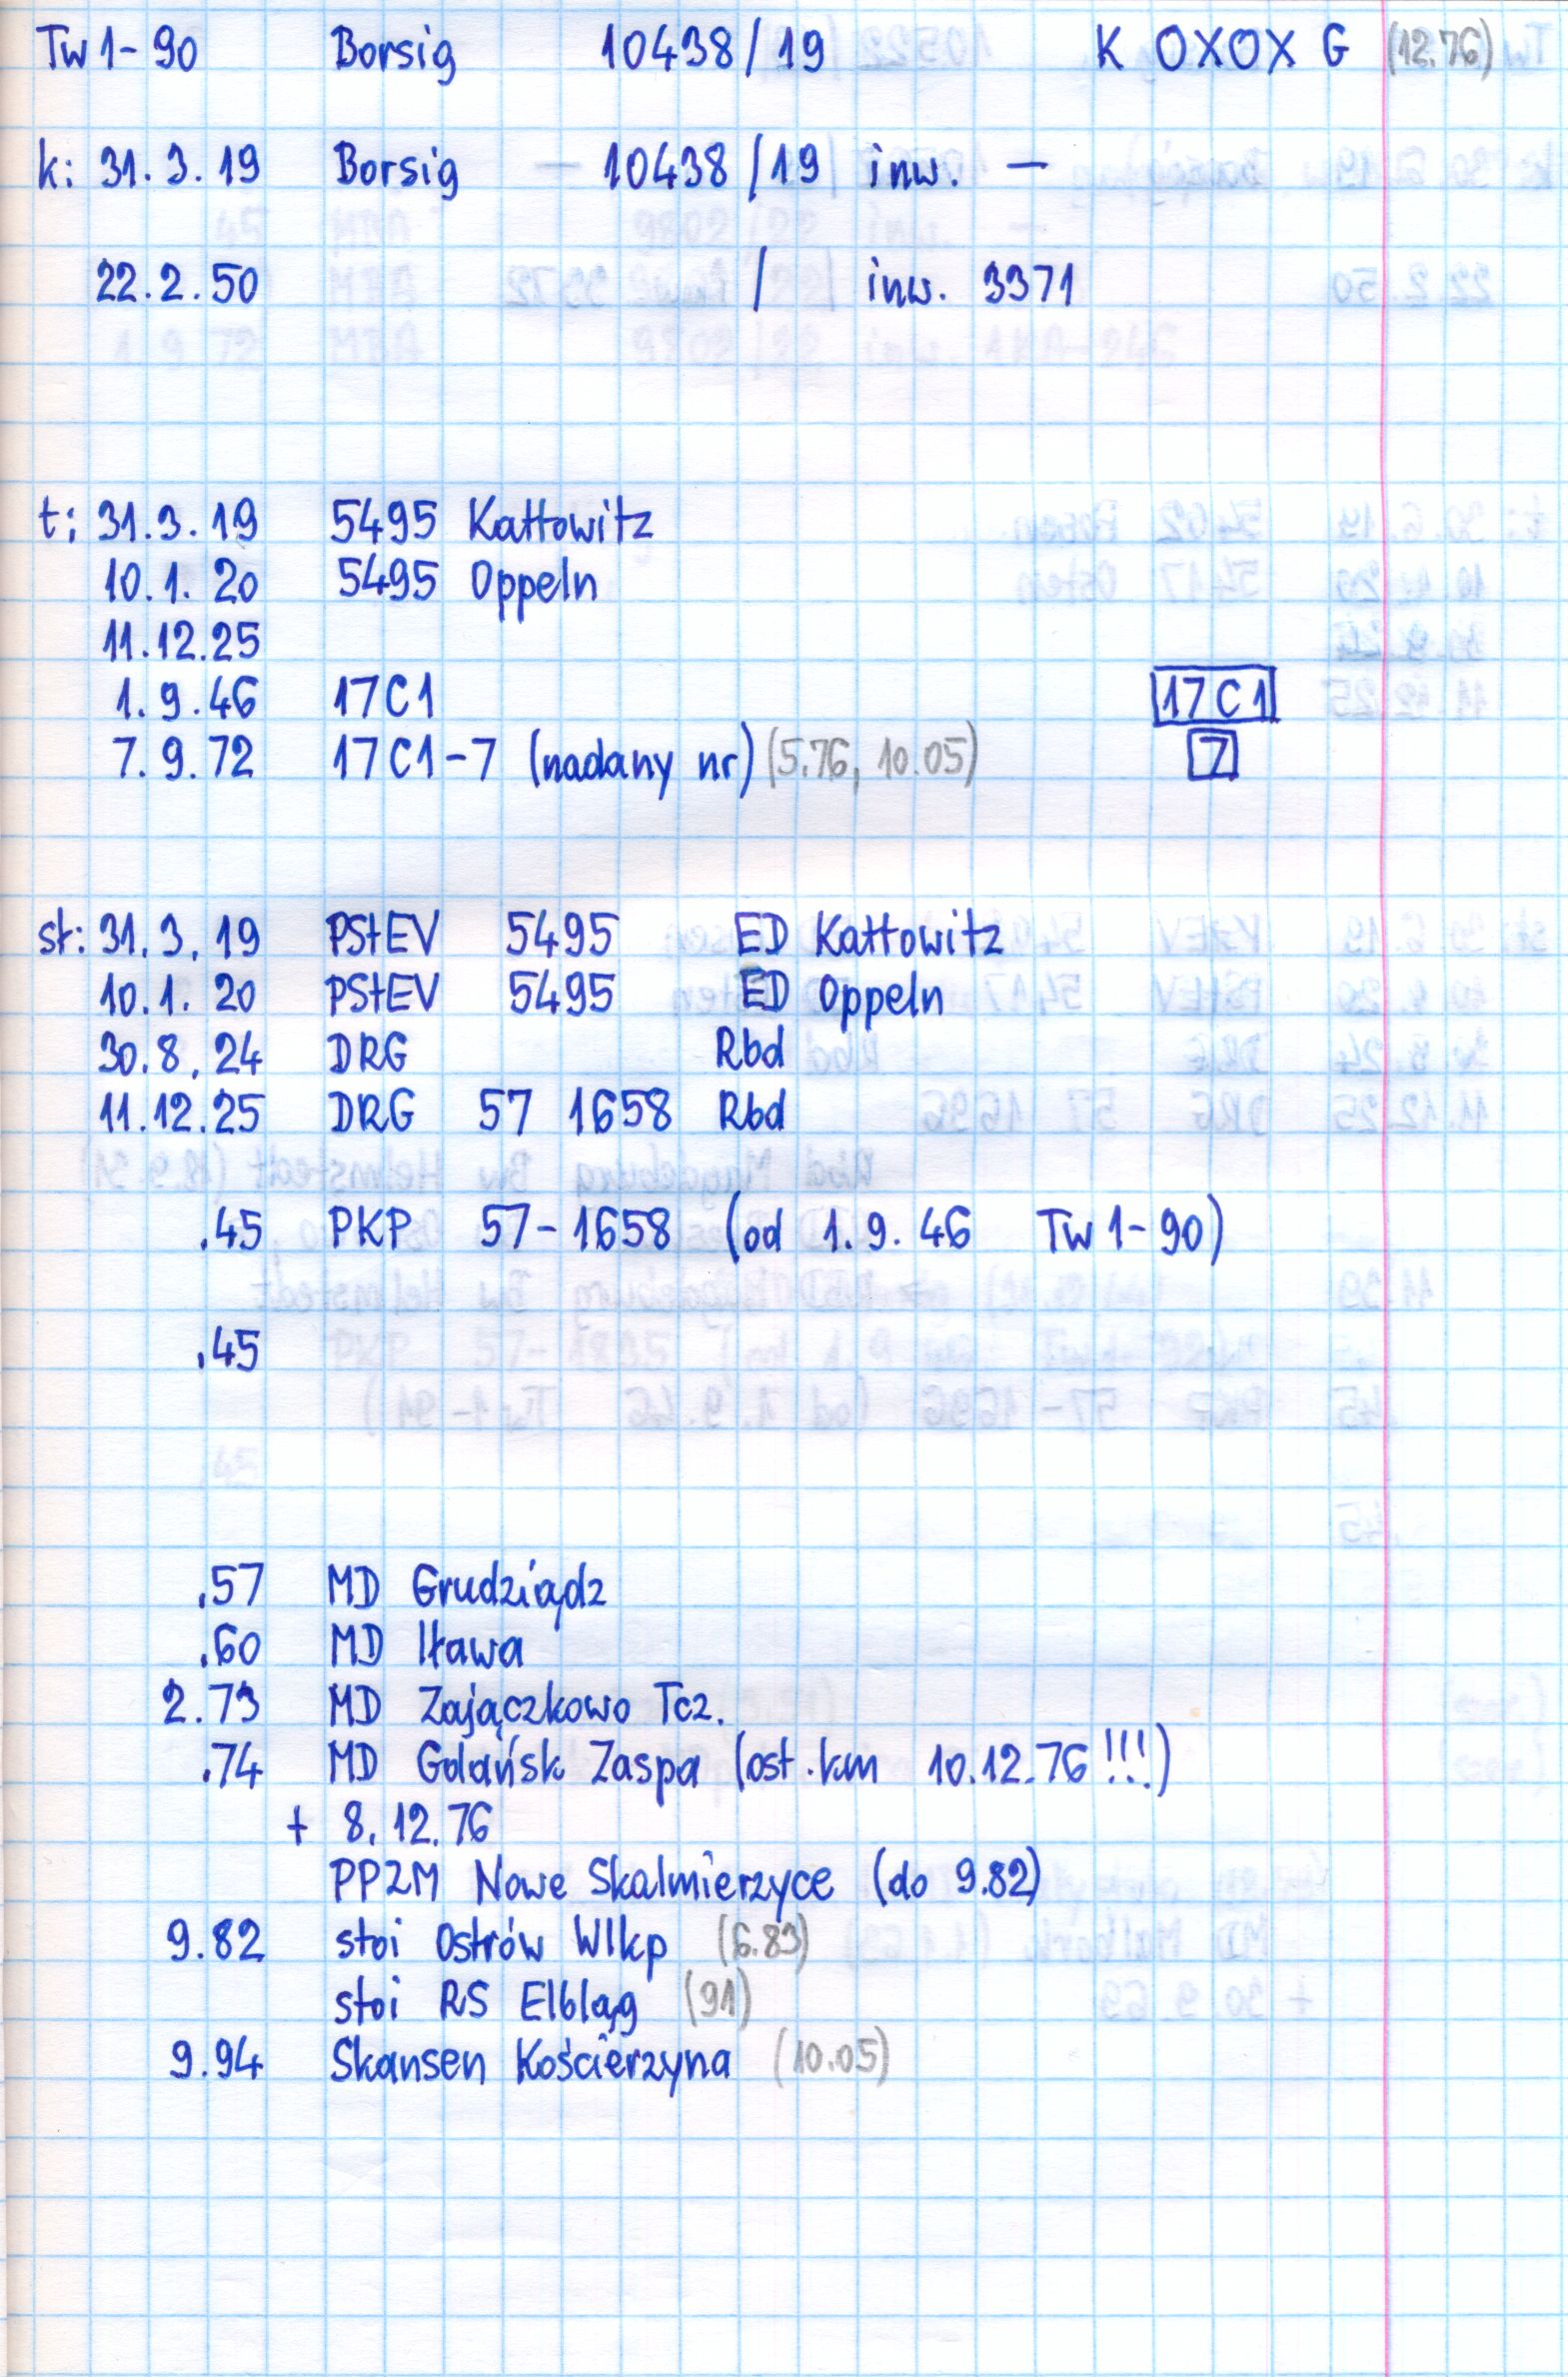 Tw 1-90 Borsig 10438/19 K OXOX G (12.76)
k: 31.3.19 Borsig — 10438/19 inw. —
22.2.50 / inw. 3371
t: 31.3.19 5495 Kattowitz
10.1.20 5495 Oppeln
11.12.25
1.9.46 17C1 17C1
7.9.72 17C1-7 (nadany nr) (5.76, 10.05) 7
st: 31.3.19 PStEV 5495 ED Kattowitz
10.1.20 PStEV 5495 ED Oppeln
30.8.24 DRG Rbd
11.12.25 DRG 57 1658 Rbd
.45 PKP 57-1658 (od 1.9.46 Tw 1-90)
.45
.57 MD Grudziądz
.60 MD Iława
2.73 MD Zajączkowo Tcz.
.74 MD Gdańsk Zaspa (ost.km 10.12.76!!!)
+ 8.12.76
PPZM Nowe Skalmierzyce (do 9.82)
9.82 stoi Ostrów Wlkp (6.83)
stoi RS Elbląg (91)
9.94 Skansen Kościerzyna (10.05)